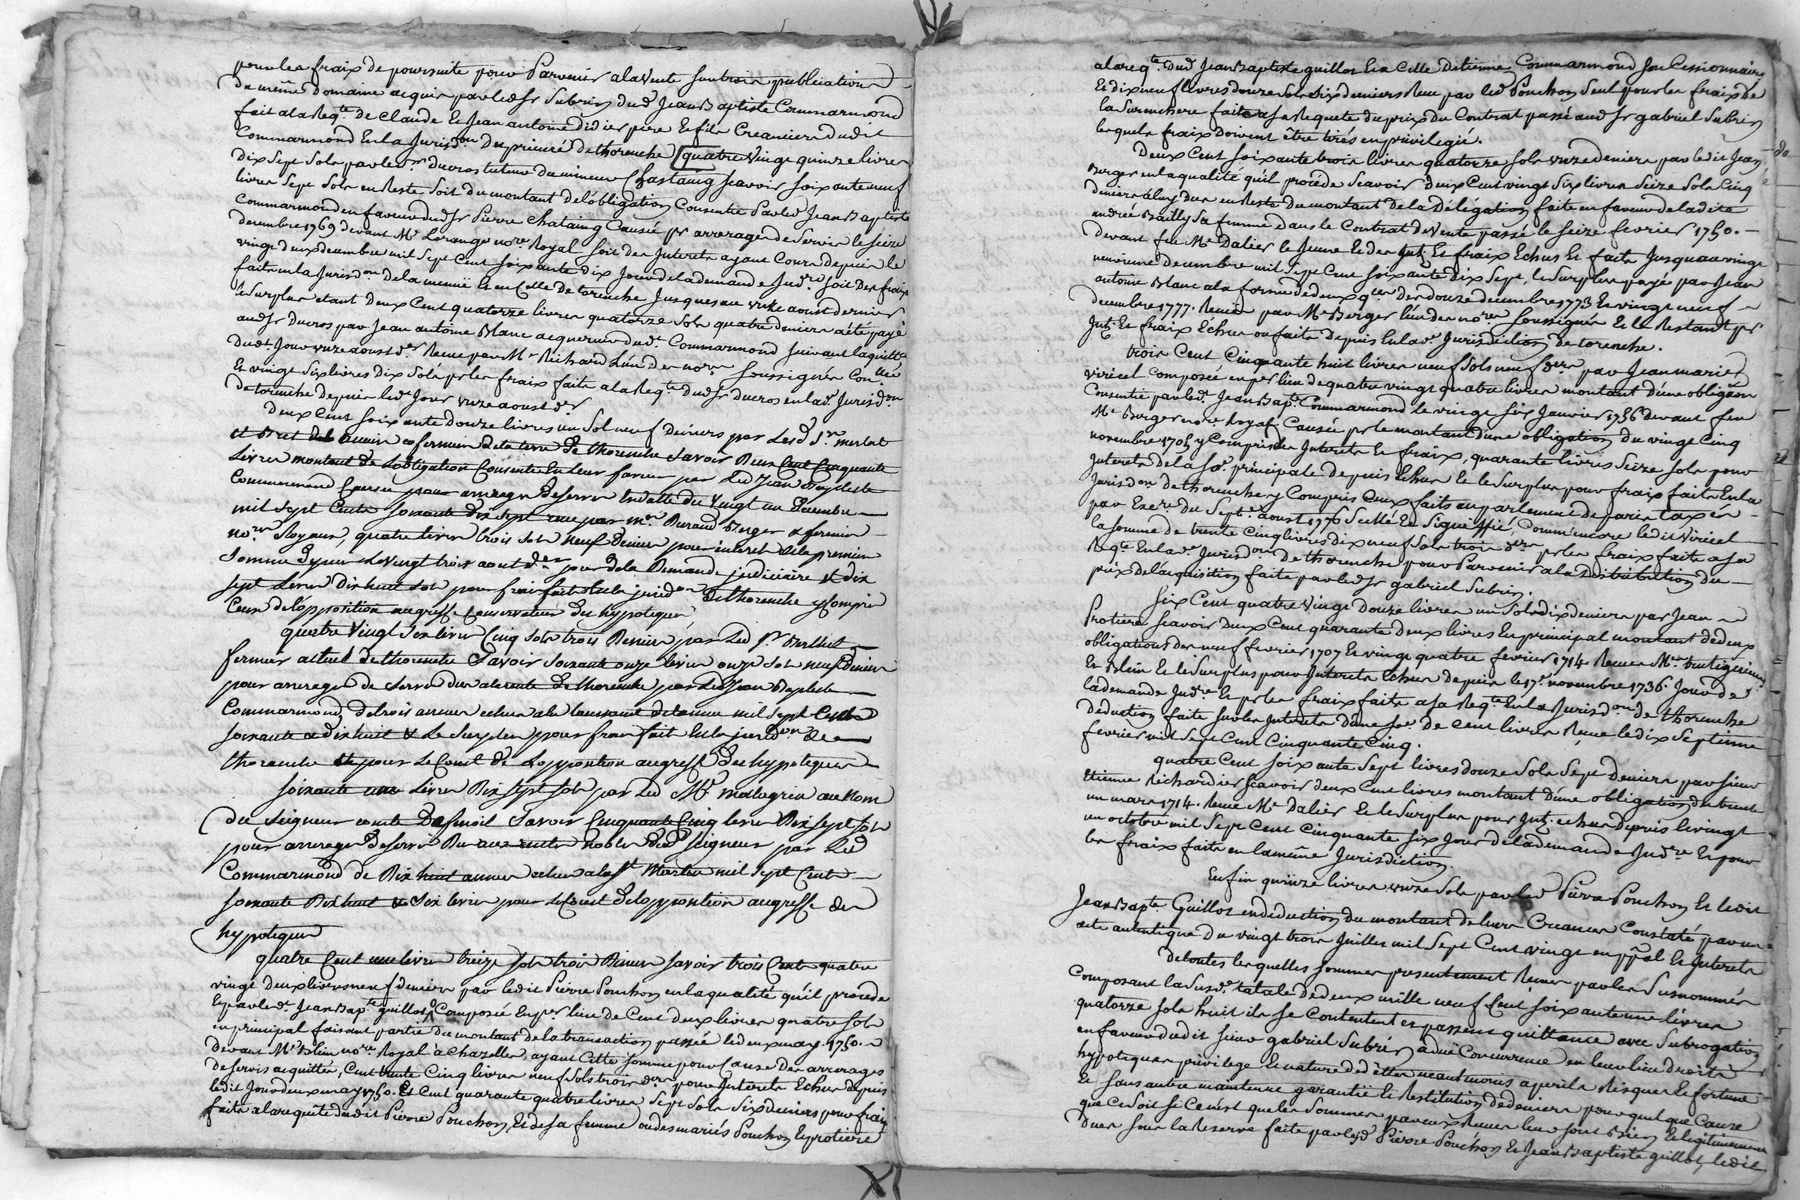 pour les fraix de poursuite pour Parvenir ala Vente sur trois publications
du même domaine acquis par ledt Sr Subrin dudt Jean Baptiste Commarmond
fait ala Reqte de Claude Et Jean antoine didier pere Et fils Creanciers dudit
Commarmond En la Jurisdon du prieuré de thorenche quatre Vingt quinze livres
dix Sept Sols par le Sr ducros tuteur du mineur Chastaing Scavoir Soixante neuf
livres Sept Sols en Reste Soit du montant de l'obligation Consentie Par led Jean Baptiste
Commarmond en faveur dudt Sr Pierre Chataing Causée pr arrerages de Servis le Seize
decembre 1769 devant Me Lorange nore Royal Soit des Interets ayant Cours depuis le
vingt deux decembre mil Sept Cent Soixante dix Jour de la demande Judre Soit des fraix
faits en la Jurisdon de la menüe et en Celle de torenche Jusques au onze aoust dernier
le Surplus etant deux Cent quatorze livres quatorze Sols quatre deniers a été payé
audt Sr ducros par Jean antoine Blanc acquereur dudt Commarmond Suivant la quittce
dudt Jour onze aoust der Recue par Me Richard L'un des nores Soussignés Con
Et vingt Six livres dix Sols pr les fraix faits ala Reqte dudt Sr ducros en lade Jurisdon
de torenche depuis led Jour onze aoust der
deux Cent Soixante douze livres un Sol neuf deniers par Lesd Srs merlat
et Bret fermiers de la terre De thorenche Savoir Deux Cent Cinquante
Livres montant de Lobligation Consentie En leur faveur par Led Jean Baptiste
Commarmond Causée pour arrerages De servis En datte du Vingt un Decembre
mil sept Cents soixante dix sept recue par mes Durand Berger & fermier
nores Royaux, quatre livres trois sols neuf Deniers pour interet de la premiere
Somme Depuis Le vingt trois aout der jour de la Demande judiciaire Et dix
sept Livres Dix huit sols pour frais faits En la jurisdon De thorenche y Compris
Ceux de l'opposition au greffe Conservateur des hypoteques
quatre Vingt Six livres Cinq sols trois Deniers par Led Sr Berthet
fermier actuel de thorenche Savoir soixante onze livres onze sols neuf Deniers
pour arrerages de Servis Dus ala rente De thorenche par Led Jean Baptiste
Commarmond De trois années echues ala toussaint de l'année mil Sept Cents
soixante et dix huit & Le Surplus pour frais fait En la jurisdon de
thorenche Et pour Le Cout de Lopposition au greffe Des hypoteques
soixante une Livres Dix sept sols par Led Me malagrin au nom
du Seigneur comte Savoir Cinquante Cinq livres Dix sept sols
pour arrerages De servis Dus aux rente noble dudt Seigneur par Led
Commarmond de Dix huit années echues ala St Martin mil sept Cent
soixante Dix huit & Six livres pour Le Cout De Lopposition au greffe des
hypoteques
quatre Cent une livres treize sols trois Deniers Savoir trois Cents quatre
vingt deux livres neuf deniers par ledit Pierre Ponchon en la qualité qu'il procede
Et par ledt Jean Bapte guillot Composée En per lieu de Cent deux livres quatre Sols
en principal faisant partie du montant de la transaction passée le deux may 1750
devant Me Blein nore Royal à Chazelles ayant Cette Somme pour Cause des arrerages
de Servis acquittés, Cent trente Cinq livres neuf Sols trois ders pour Interets Echus depuis
ledit Jour deux may 1750. Et Cent quarante quatre livres Sept Sols Six deniers pour fraix
faits ala requête dudit Pierre Ponchon Et de Sa femme ou des mariés Ponchon Et protiere
ala reqte dudt Jean Baptiste guillot Et a Celle d'etienne Commarmond Son Cessionnaire
Et dix neuf livres douze Sols Six deniers Reçu par led Ponchon Seul pour les fraix de
la Surenchere faite a Sa Requete du prix du Contrat passé audt Sr gabriel Subrin
lesquels fraix doivent être tirés en privilegié.
Deux Cent Soixante trois livres quatorze Sols onze deniers par ledit Jean
Berger en la qualité qu'il procede Scavoir deux Cent vingt Six livres Seize Sols Cinq
deniers a luy dus en Reste du montant de la Délégation faite en faveur de ladite
andrée Bailly Sa femme dans le Contrat de Vente passé le Seize fevrier 1750.
devant feu Me Dalier le Jeune Et des Intts Et fraix Echus Et faits Jusqu'au vingt
neuvieme decembre mil Sept Cent Soixante dix Sept, le Surplus payé par Jean
antoine Blanc ala forme de deux qces des douze decembre 1773 Et vingt neuf
decembre 1777. Recües par Me Berger l'un des nores Soussignés Et le Restant pr
Intt Et fraix Echus ou faits depuis En lade Jurisdiction de torenche.
trois Cent Cinquante huit livres neuf Sols neuf Ders par Jean marie
viricel Composée en per lieu de quatre vingt quatre livres montant d'une obligaon
Consentie par ledt Jean Bapte Commarmond le vingt Six Janvier 1756 devant feu
Me Berger nore Royal Causée pr le montant d'une obligation du vingt Cinq
novembre 1705 y Compris les Interets Et fraix, quarante livres Seize Sols pour
Interets de la Sode principale depuis Echus Et le Surplus pour fraix faits En la
Jurisdon de thorenche y Compris Ceux faits au parlement de paris taxés
par Exere du Sept aoust 1776 Scellé Et Signiffié, Comm'encore ledit Viricel
la Somme de trente Cinq livres dix neuf Sols trois ders pr les fraix faits a Sa
Reqte En lade Jurisdon de thorenche pour Parvenir ala distribution du
prix de l'acquisition faite par led Sr gabriel Subrin.
Six Cent quatre Vingt Douze livres un Sol dix deniers par Jean
Protiere Scavoir deux Cent quarante deux livres En principal montant de deux
obligations des neuf fevrier 1707 Et vingt quatre fevrier 1714 Recües Mes
Et Blein Et le Surplus pour Interets Echus depuis le 17e novembre 1736. Jour de
la demande Judre Et pr les fraix faits a Sa Reqte En la Jurisdon de thorenche
Deduction faite Sur les Interets d'une Sode de Cent livres Recue le dix Septieme
fevrier mil Sept Cent Cinquante Cinq.
quatre Cent Soixante Sept livres douze Sols Sept deniers par Sieur
Etienne Richardier Scavoir deux Cent livres montant d'une obligation du trente
un mars 1714. Recue Me dalier Et le Surplus pour Intt echus depuis le vingt
un octobre mil Sept Cent Cinquante Six Jour de la demande Judre Et pour
les fraix faits en la même Jurisdiction.
Enfin quinze livres onze Sols par led Pierre Ponchon Et ledit
Jean Bapte Guillot en deduction du montant de leurs Creances Constaté par un
acte autentique du vingt trois Juillet mil Sept Cent vingt en ppal Et Interets
De toutes lesquelles Sommes presentement Recues par les Susnommés
Composant la Susde totale de deux mille neuf Cent Soixante une livres
quatorze Sols huit ils Se Contentent et passent quittance avec Subrogation
en faveur dudit Sieur gabriel Subrin a düe Concurrence en leur lieu droits
hypoteques privilege Et nature de dettes neantmoins a perils Risques Et fortune
Et Sans autre maintenüe garantie Et Restitution de deniers pour quelque Cause
que Ce Soit Si Ce n'est que les Sommes par eux Recues leur Sont Bien Et legitimement
dues Sous la Reserve faite par lesd Pierre Ponchon Et Jean Baptiste guillot, ledit